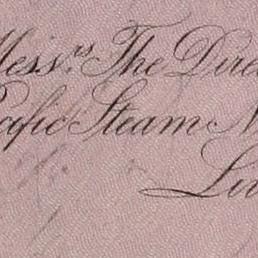 Messrs. The Dire
acific Steam N
Liv